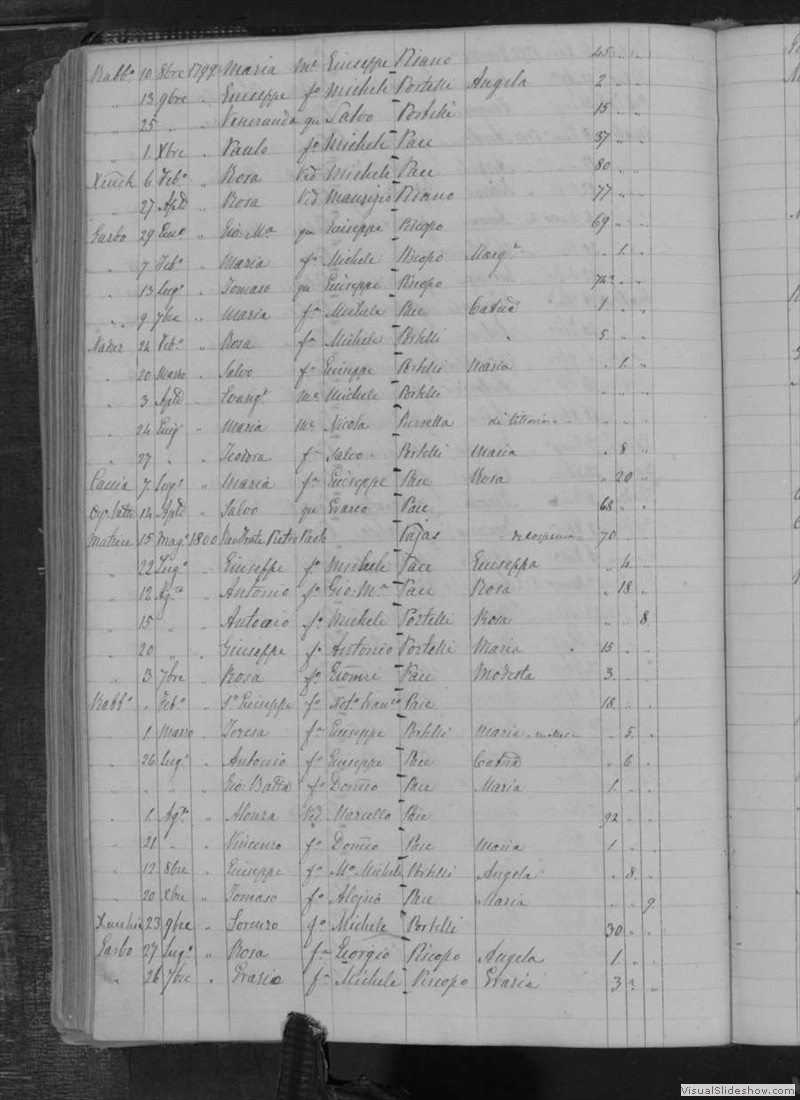 Rabb.o 10 8bre 1799 Maria m.e Giuseppe Pisano 45 " "
" 13 9bre " Giuseppe f.o Michele Portelli Angela 2 " "
" 25 " " Veneranda qu Salvo Portelli 15 " "
" 1 Xbre " Paulo f.o Michele Pace 37 " "
6 Feb.o " Rosa Vid Michele Pace 80 " "
" 27 Aple " Rosa Vid Maurizio Pisano 77 " "
Garbo 29 " Gio: M.a qu Giuseppe Piscopo 69 " "
" 7 Feb.o " Maria f.a Michele Piscopo " 1 "
" 13 Lug.o " Tomaso qu Giuseppe Piscopo " "
" 9 7bre " Maria f.a Michele Pace 1 " "
Nadur 24 Feb.o " Rosa f.a Michele Portelli " 5 " "
" 20 Marzo " Salvo f.o Giuseppe Portelli Maria " 1 "
" 3 Aple " m.e Michele Portelli " " "
" 24 " Maria m.e Nicola " " "
" 27 " " Teodora f.a Salvo Portelli Maria " 8 "
Caccia 7 Lug.o " Maria f.a Giuseppe Pace Rosa " 20 "
14 Aple " Salvo qu Pace 68 " "
Matrice 15 Mag.o 1800 Pietro Paolo 70 " "
" 22 Lug.o " Giuseppe f.o Michele Pace Giuseppa " 4 "
" 12 Ag.o " Antonio f.o Gio: M.a Pace Rosa " 18 "
" 15 " " Antonio f.o Michele Portelli Rosa " " 8
" 20 " " Giuseppe f.o Antonio Portelli Maria 15 " "
" 3 7bre " Rosa f.a Pace Modesta 3 " "
Rabb.o " Feb.o " Giuseppe f.o Not.o Pace 18 " "
" 1 Marzo " Teresa f.a Giuseppe Portelli Maria " 5 "
" 26 Lug.o " Antonio f.o Giuseppe Pace " 6 "
" " " Gio: Batta f.o Pace Maria 1 " "
" 1 Ag.o " Alonza Vid Marcello Pace 92 " "
" 21 " " Vincenzo f.o Pace Maria 1 " "
" 12 8bre " Giuseppe f.o M.o Michele Portelli Angela " 8 "
" 20 Xbre " Tomaso f.o Pace Maria " " 9
23 9bre " Lorenzo f.o Michele Portelli 30 " "
Garbo 27 Lug.o " Rosa f.a Giorgio Piscopo Angela 1 " "
" 26 7bre " Grazio f.o Michele Piscopo Grazia 3 " "
VisualSlideshow.com